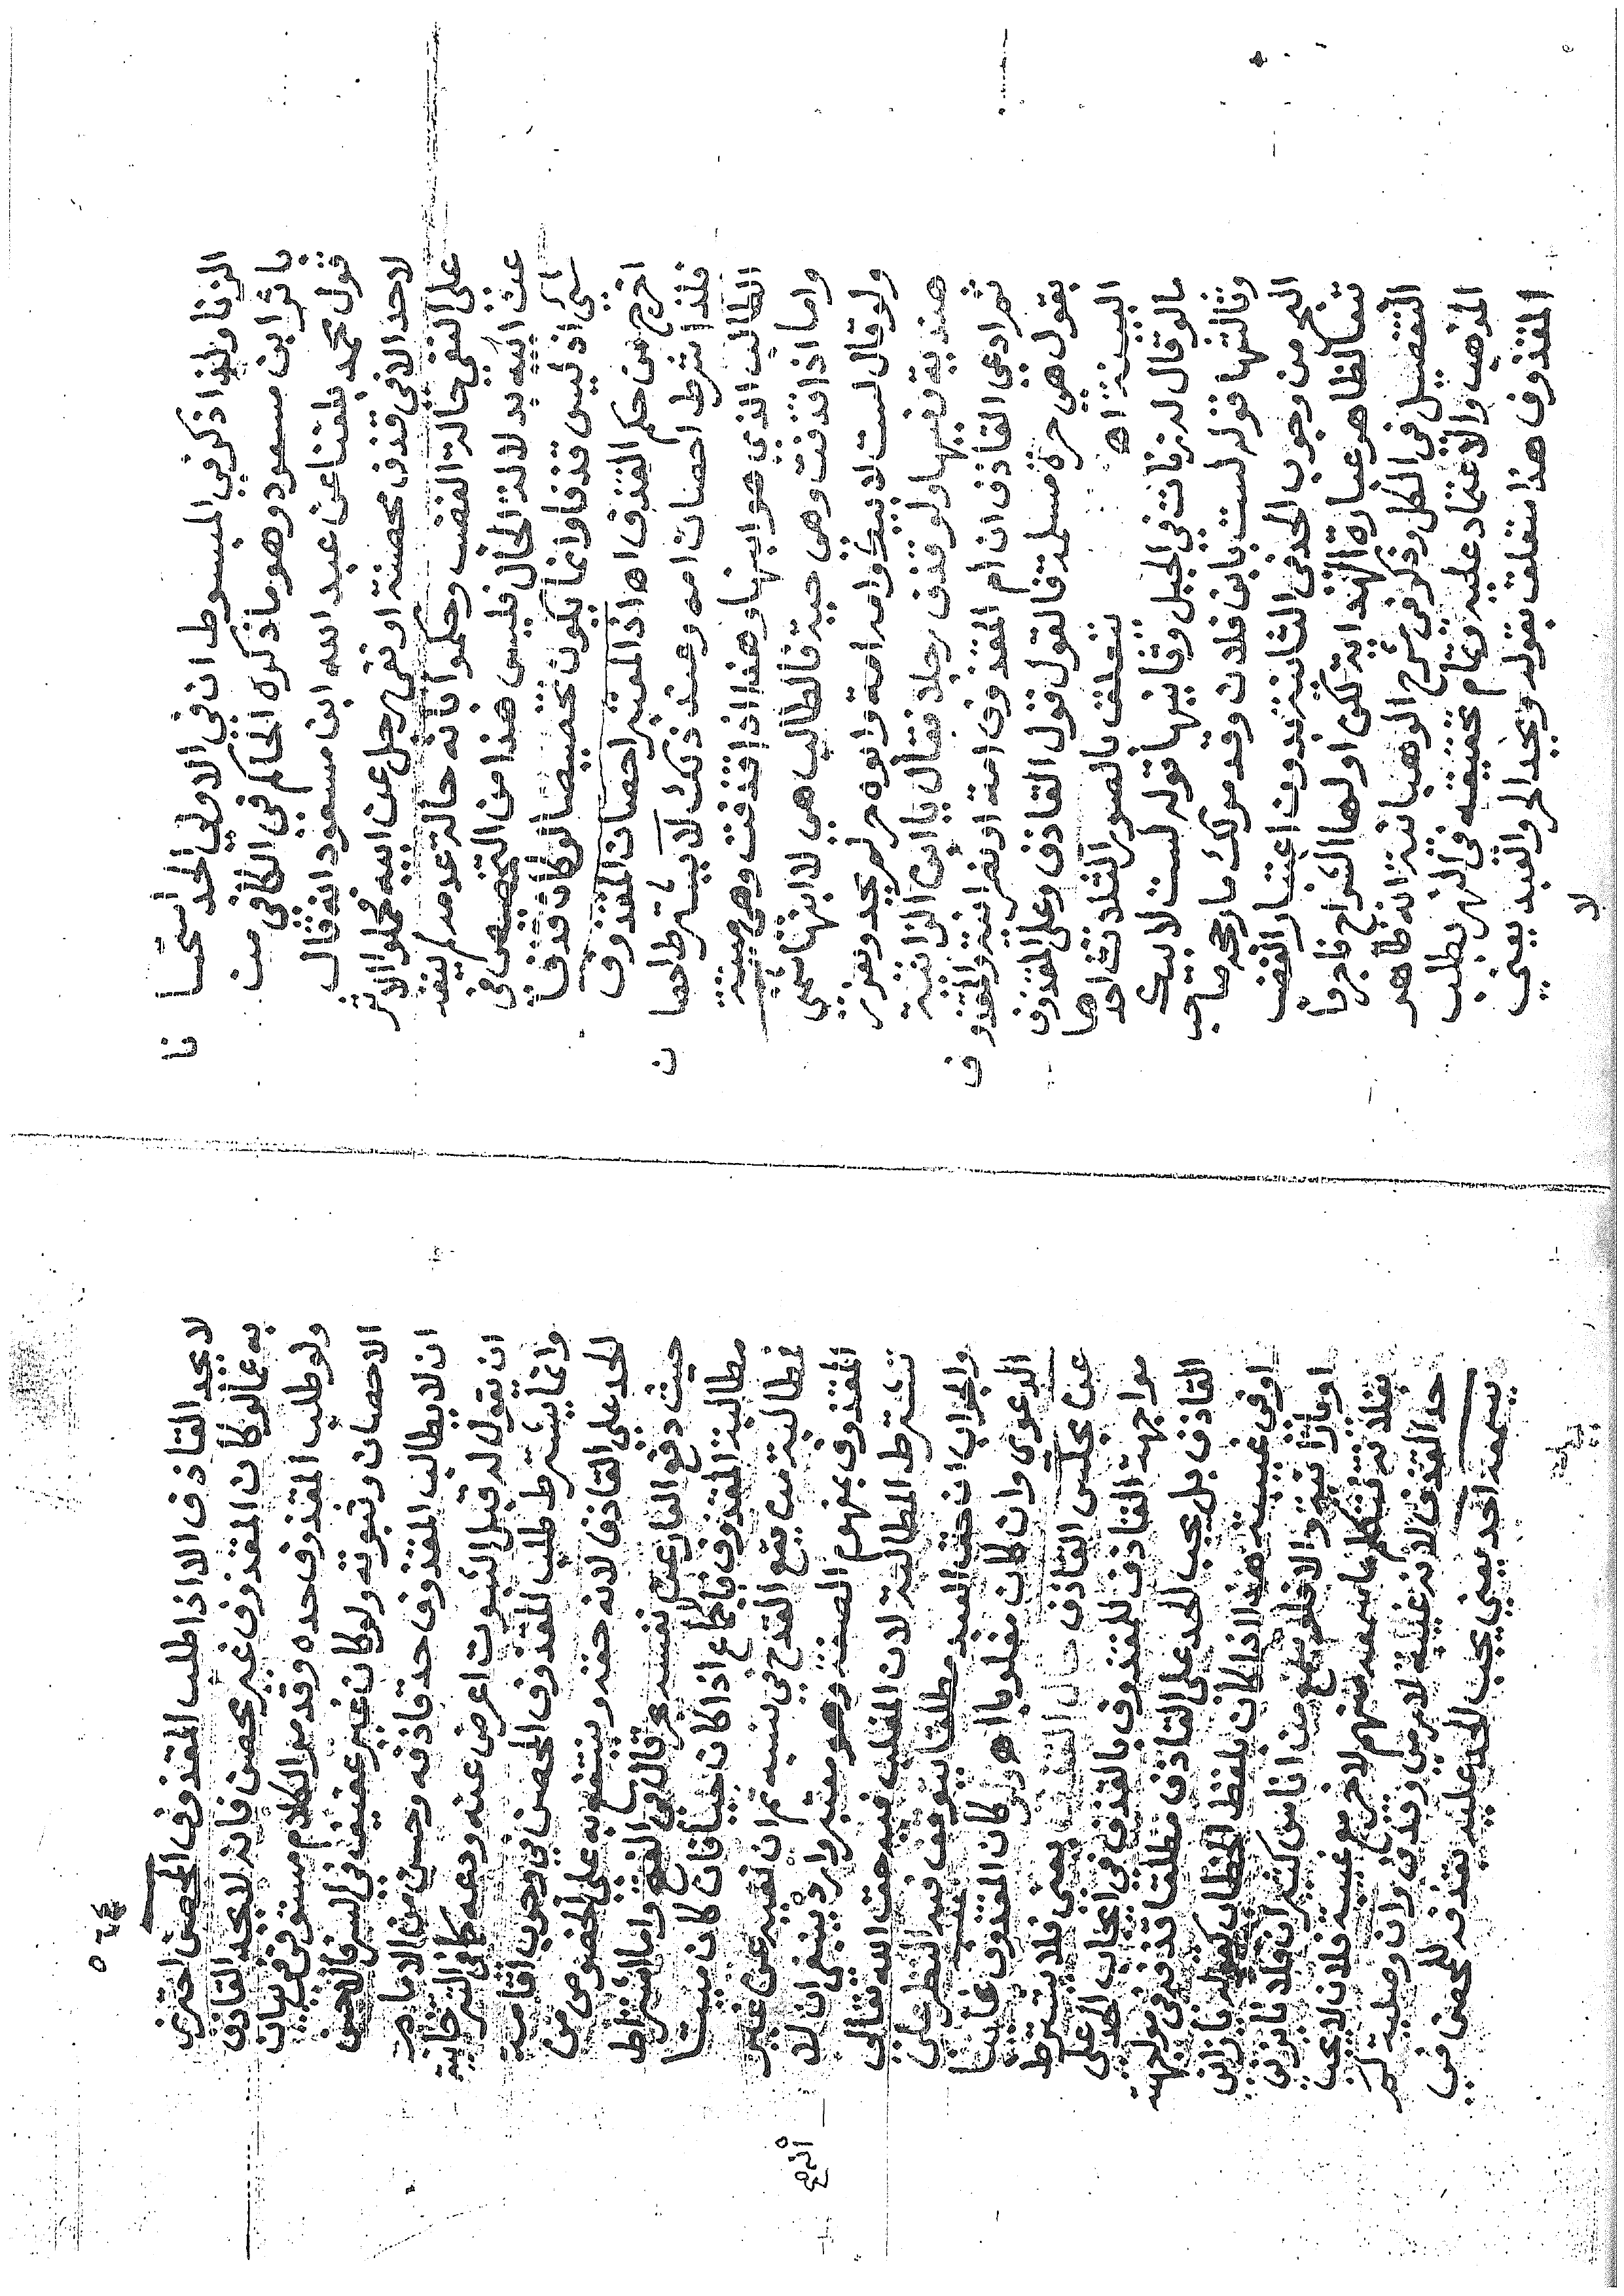 الزنا ولهذا ذكر في المبسوط ان في الاولي الحد استحسا نا
باثر ابن مسعود وهو ما ذكره الحاكم في الكافي من
قول محمد بلغنا عن عبد الله ابن مسعود انه قال
لاحد الا في قذف محصنة او نفي رجل عن ابيه فحملوا الاثر
على النفي حالة الغضب وحكموا بانه حالة عدمه لم ينفه
عن ابيه بدلالة الحال فليس هذا من التخصيص في
شي اذ ليس قذفا وانما يكون تخصيصا لو كان قذفا
اخرج من حكم القذف اه اذ المعتبر احصان المقذوف
فلذا شرط احصان امه وعند ذلك لا يشترط احصا ن
الطالب الذي هو ابنها وهذا اذا قذفت وهي ميتة
واما اذا قذفت وهي حية فالطالب هي لا ابنها شمني
ولو قال لست لابيك وامه امة وابوه حر لم يحد ويعزر
هنديه وفيها ولو قذف رجلا فقال يا ابن الزانية
ثم ادعي القاذف ان ام المقذوف امة او نصرانية والمقذو ف
يقول هي حرة مسلمة فالقول قول القاذف وعلى المقذوف
البينة اه يتعلق بالصور الثلاثة احدها
ما لو قال له زنات في الجبل وثانيها قوله لست لابيك
وثالثها قوله لست بابن فلان وقد مر لك ما رجحه صاحب
من وجوب الحد في الثانية بدون اعتبار الغضب
تبعا لظاهر عبارة الهداية لكن اولها الشراح
التفصيل في الكل وذكر في شرح الوهبانية انه ظاهر
المذهب والاعتماد عليه وتمام تحقيقه في النهر بطلب
المقذوف هذا متعلق بقوله ويحد الحر والعبد يعني
لا
لا يحد القاذف الا اذا طلب المقذوف المحصن احترز
به عما لو كان المقذوف غير محصن فانه لا يحد القاذف
ولو طلب المقذوف حده وقد مر الكلام مستوفي في بيان
الاحصان وثبوته ولو كان غير عفيف في السر فالحسن
ان لا يطالب المقذوف حد قاذفه وحسن من الامام
ان يقول له قبل الثبوت اعرض عنه ودعه كما في التترخانية
وانما يشترط طلب المقذوف المحصن في وجوب اقامة
الحد علي القاذف لانه حقه وينتفع به علي الخصوص من
حيث دفع العار عن نفسه قال في الفتح واما اشتراط
مطالبة المقذوف فاجماع اذا كان حيا فان كان ميتا
فمطالبة من يقع القدح في نسبه ثم ان نفيه عن غير
المقذوف بمفهوم الصفة وهو معتبر وارد ينبغي ان لا
تشترط المطالبة لان المغلب فيه حق الله تعالى
والجواب ان حق العبد مطلقا يتوقف فيه النظر على
الدعوي وان كان مغلوبا اه ولو كان المقذوف غائبا
عن مجلس القاذف حال القذف يعني فلا يشترط
مواجهة القاذف للمقذوف بالقذف في ايجاب الحد على
القاذف بل يجب الحد على القاذف مطلقا قذفه في مواجهته
او في غيبته هذا اذا كان بلفظ الخطاب كقوله يا زاني
او يا زانية والا فلو سمع من اناس كثير ان فلانا يزني
بفلانة فتكلم ما سمعه منهم لاخر مع غيبة فلان لا يجب
حد القذف لانه غيبة لا رمي وقذف وان وصلية لم
يسمعه احد يعني يجب الحد عليه بقذفه المحصن في